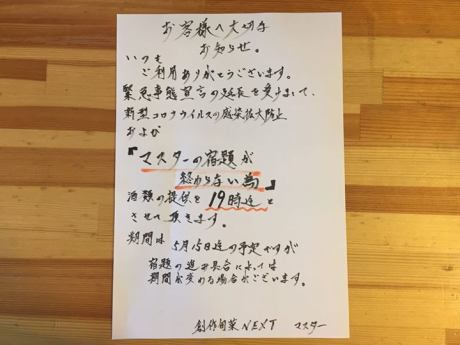 お客様へ大切な
お知らせ。
いつも
ご利用ありがとうございます。
緊急事態宣言の延長を受けまして、
新型コロナウイルスの感染拡大防止
および
『マスターの宿題が
終わらない為』
酒類の提供を19時迄と
させて頂きます。
期間は5月15日迄の予定ですが
宿題の進み具合によっては
期間が変わる場合がございます。
創作旬菜NEXT マスター